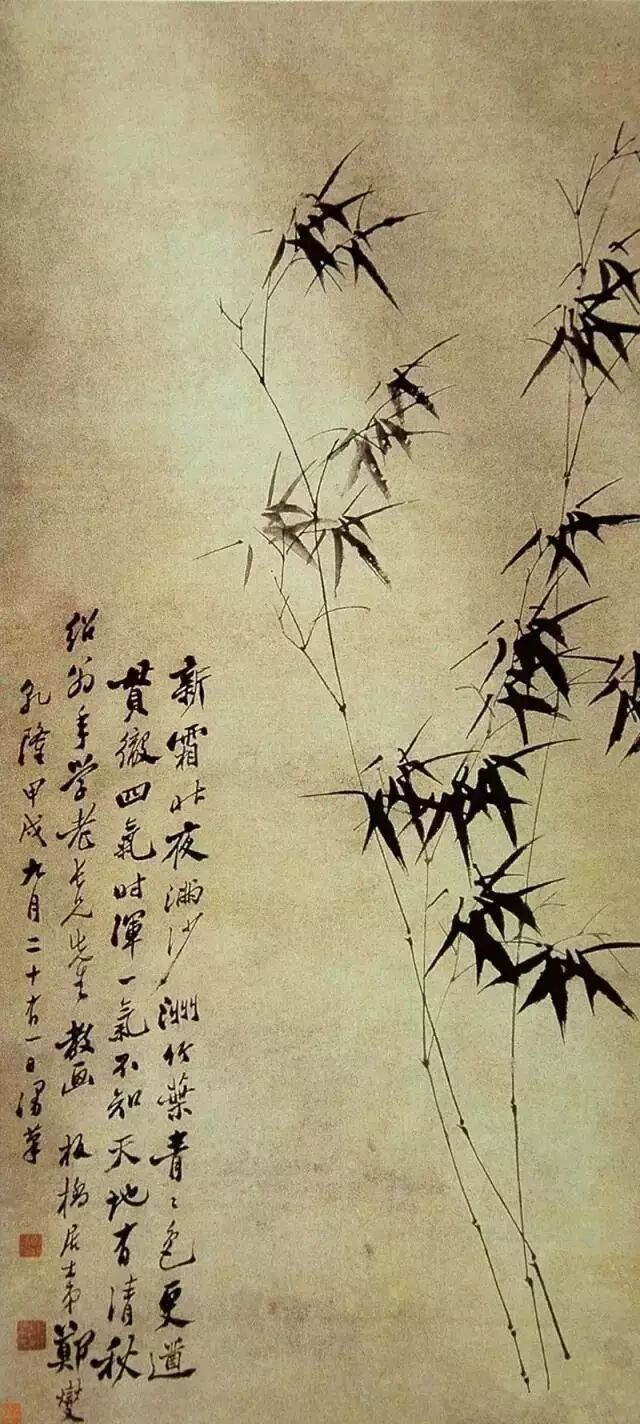 新霜昨夜滿沙洲竹葉青〻色更遒
貫徹四氣时渾一氣不知天地有清秋
紹翁年学老长兄先生教画板橋居士弟鄭燮
乾隆甲戌九月二十有一日漫筆